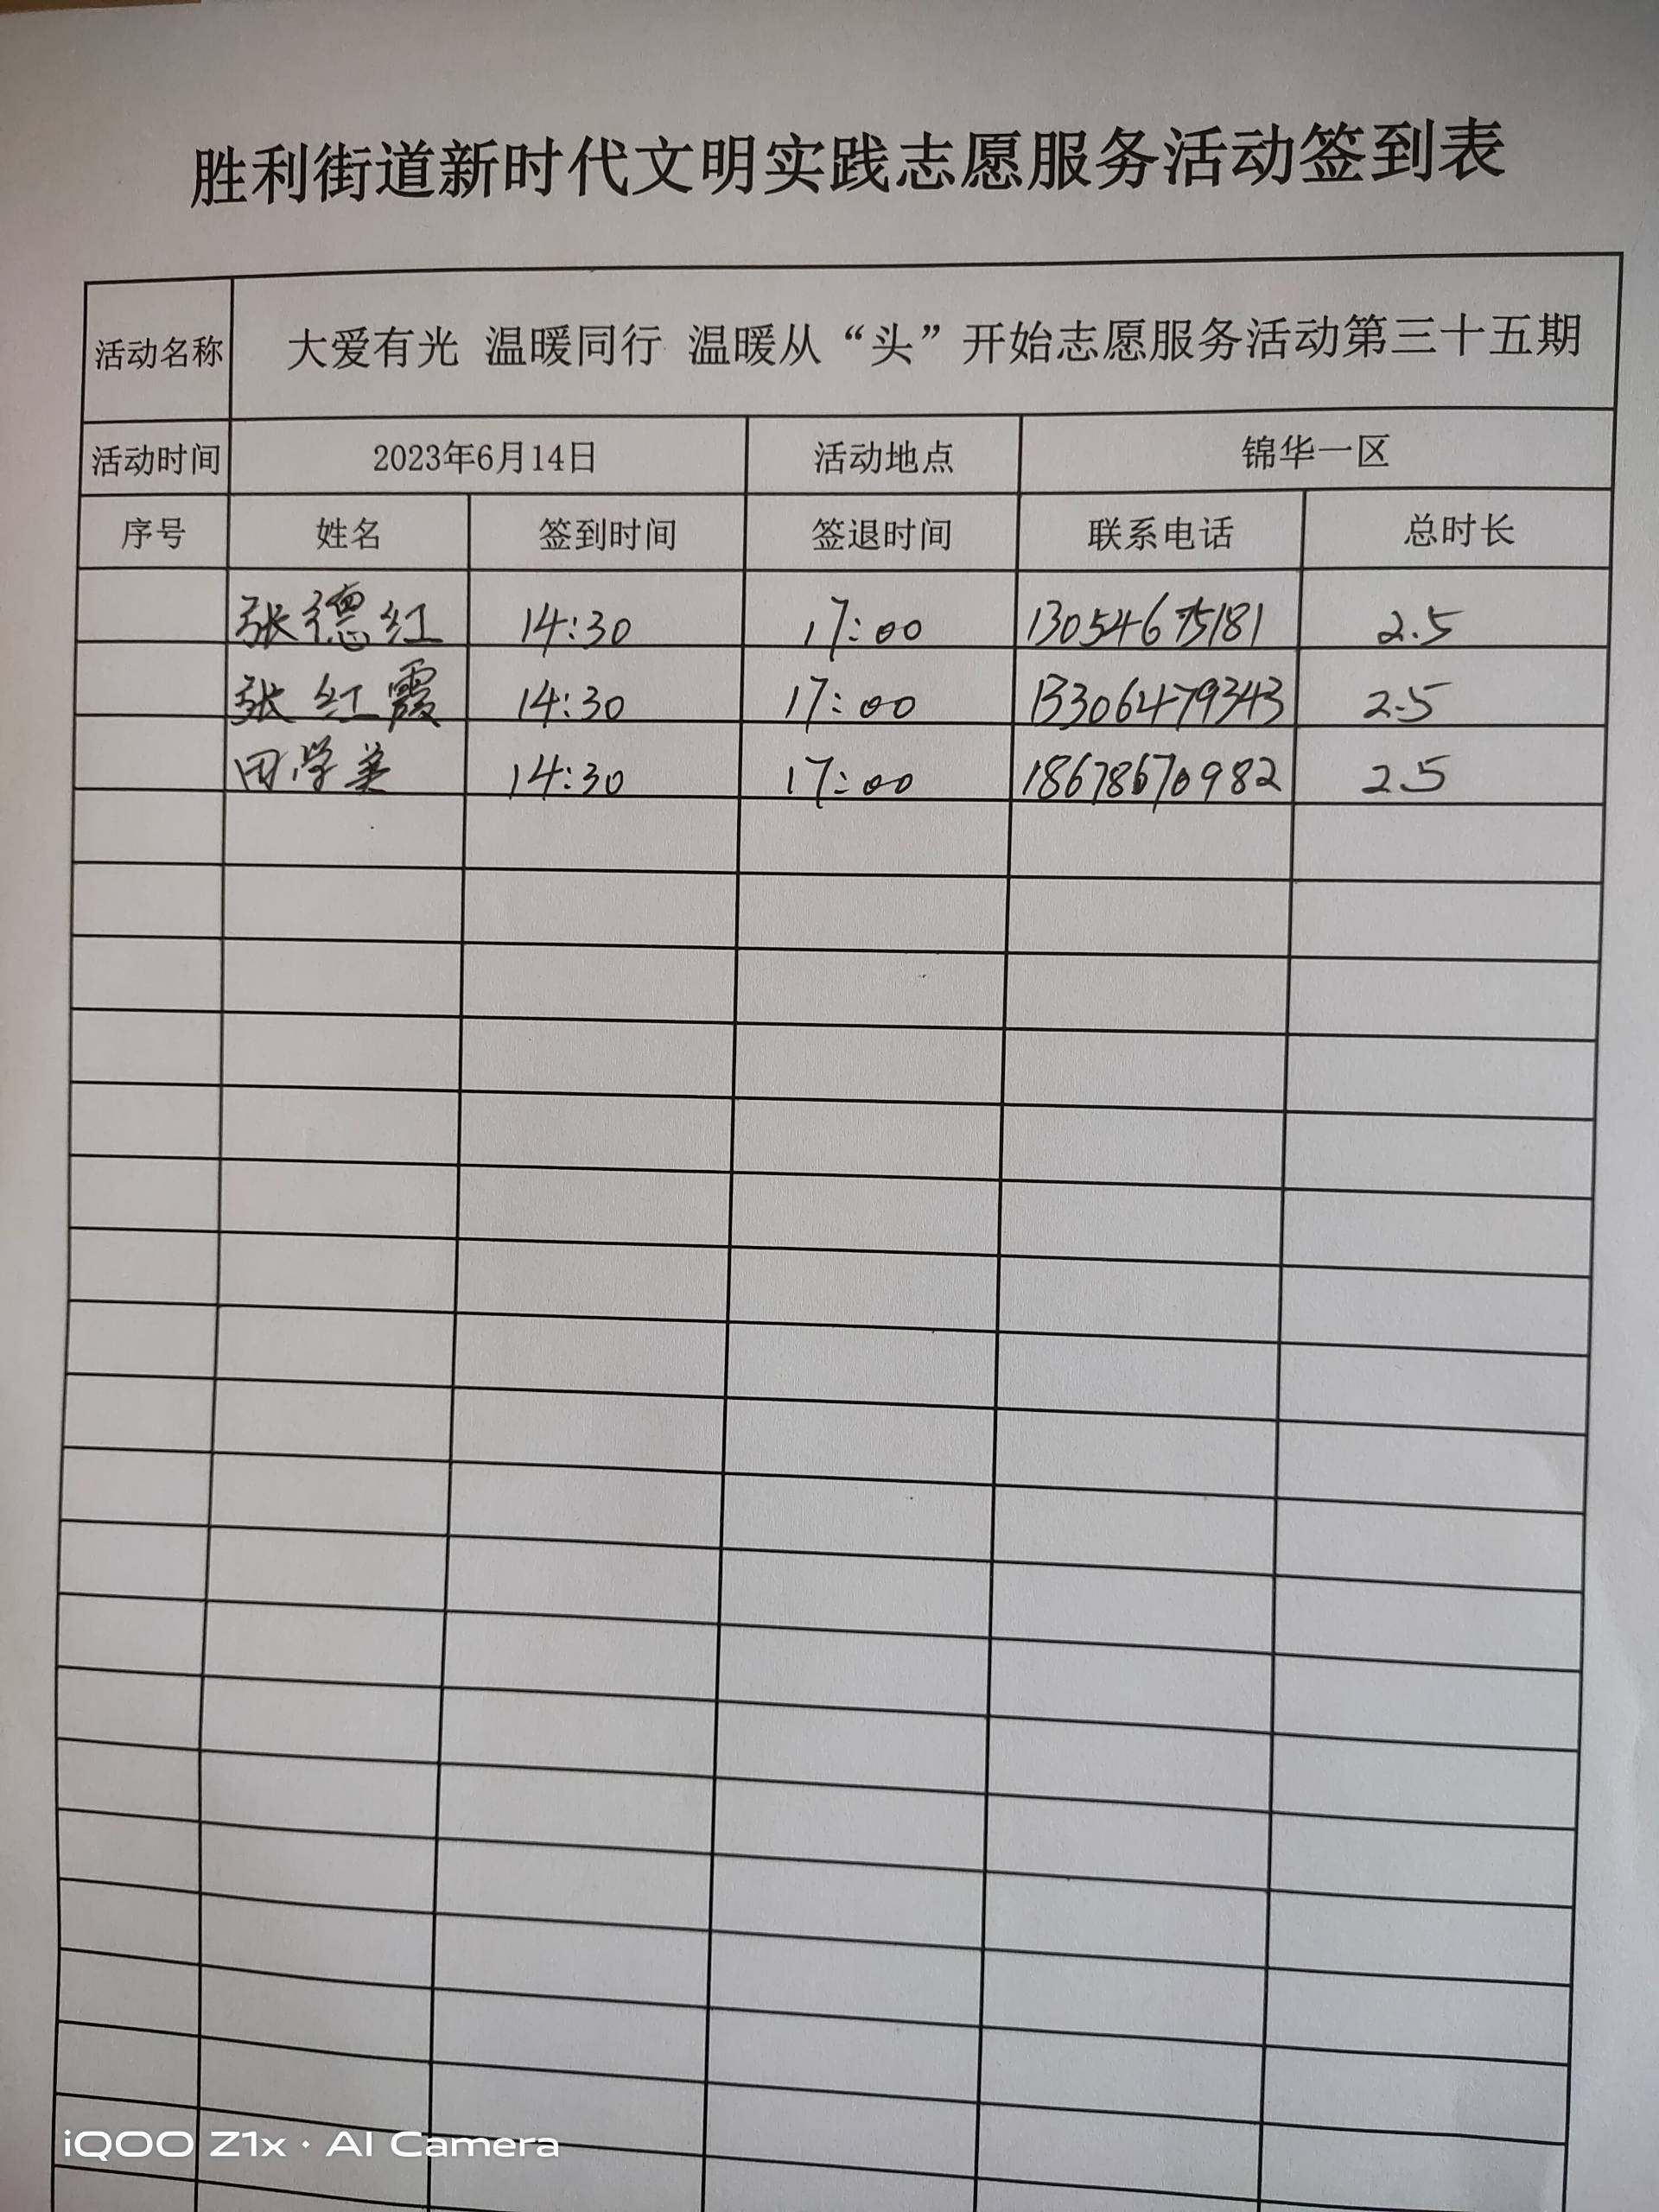 胜利街道新时代文明实践志愿服务活动签到表
活动名称 大爱有光 温暖同行 温暖从“头”开始志愿服务活动第三十五期
活动时间 2023年6月14日 活动地点 锦华一区
序号 姓名 签到时间 签退时间 联系电话 总时长
张德红 14:30 17:00 13054675181 2.5
张红霞 14:30 17:00 13306479343 2.5
田学美 14:30 17:00 18678670982 2.5
iQOO Z1x · AI Camera